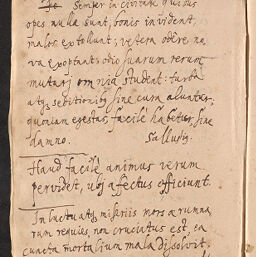 Semper in civitate quibus
opes nullæ sunt, bonis invident,
malos extollunt; vetera odere, no
va exoptant: odio suarum rerum
mutari omnia student: turba
atq; seditionib; sine cura aluntur,
quoniam egestas facile habetur sine
damno. Sallustj.
Haud facile animus verum
pervidet, ubj affectus officiunt.
In luctu atq; miseriis mors ærumna
rum requies, non cruciatus est, ea
cuncta mortalium mala dissolvit.